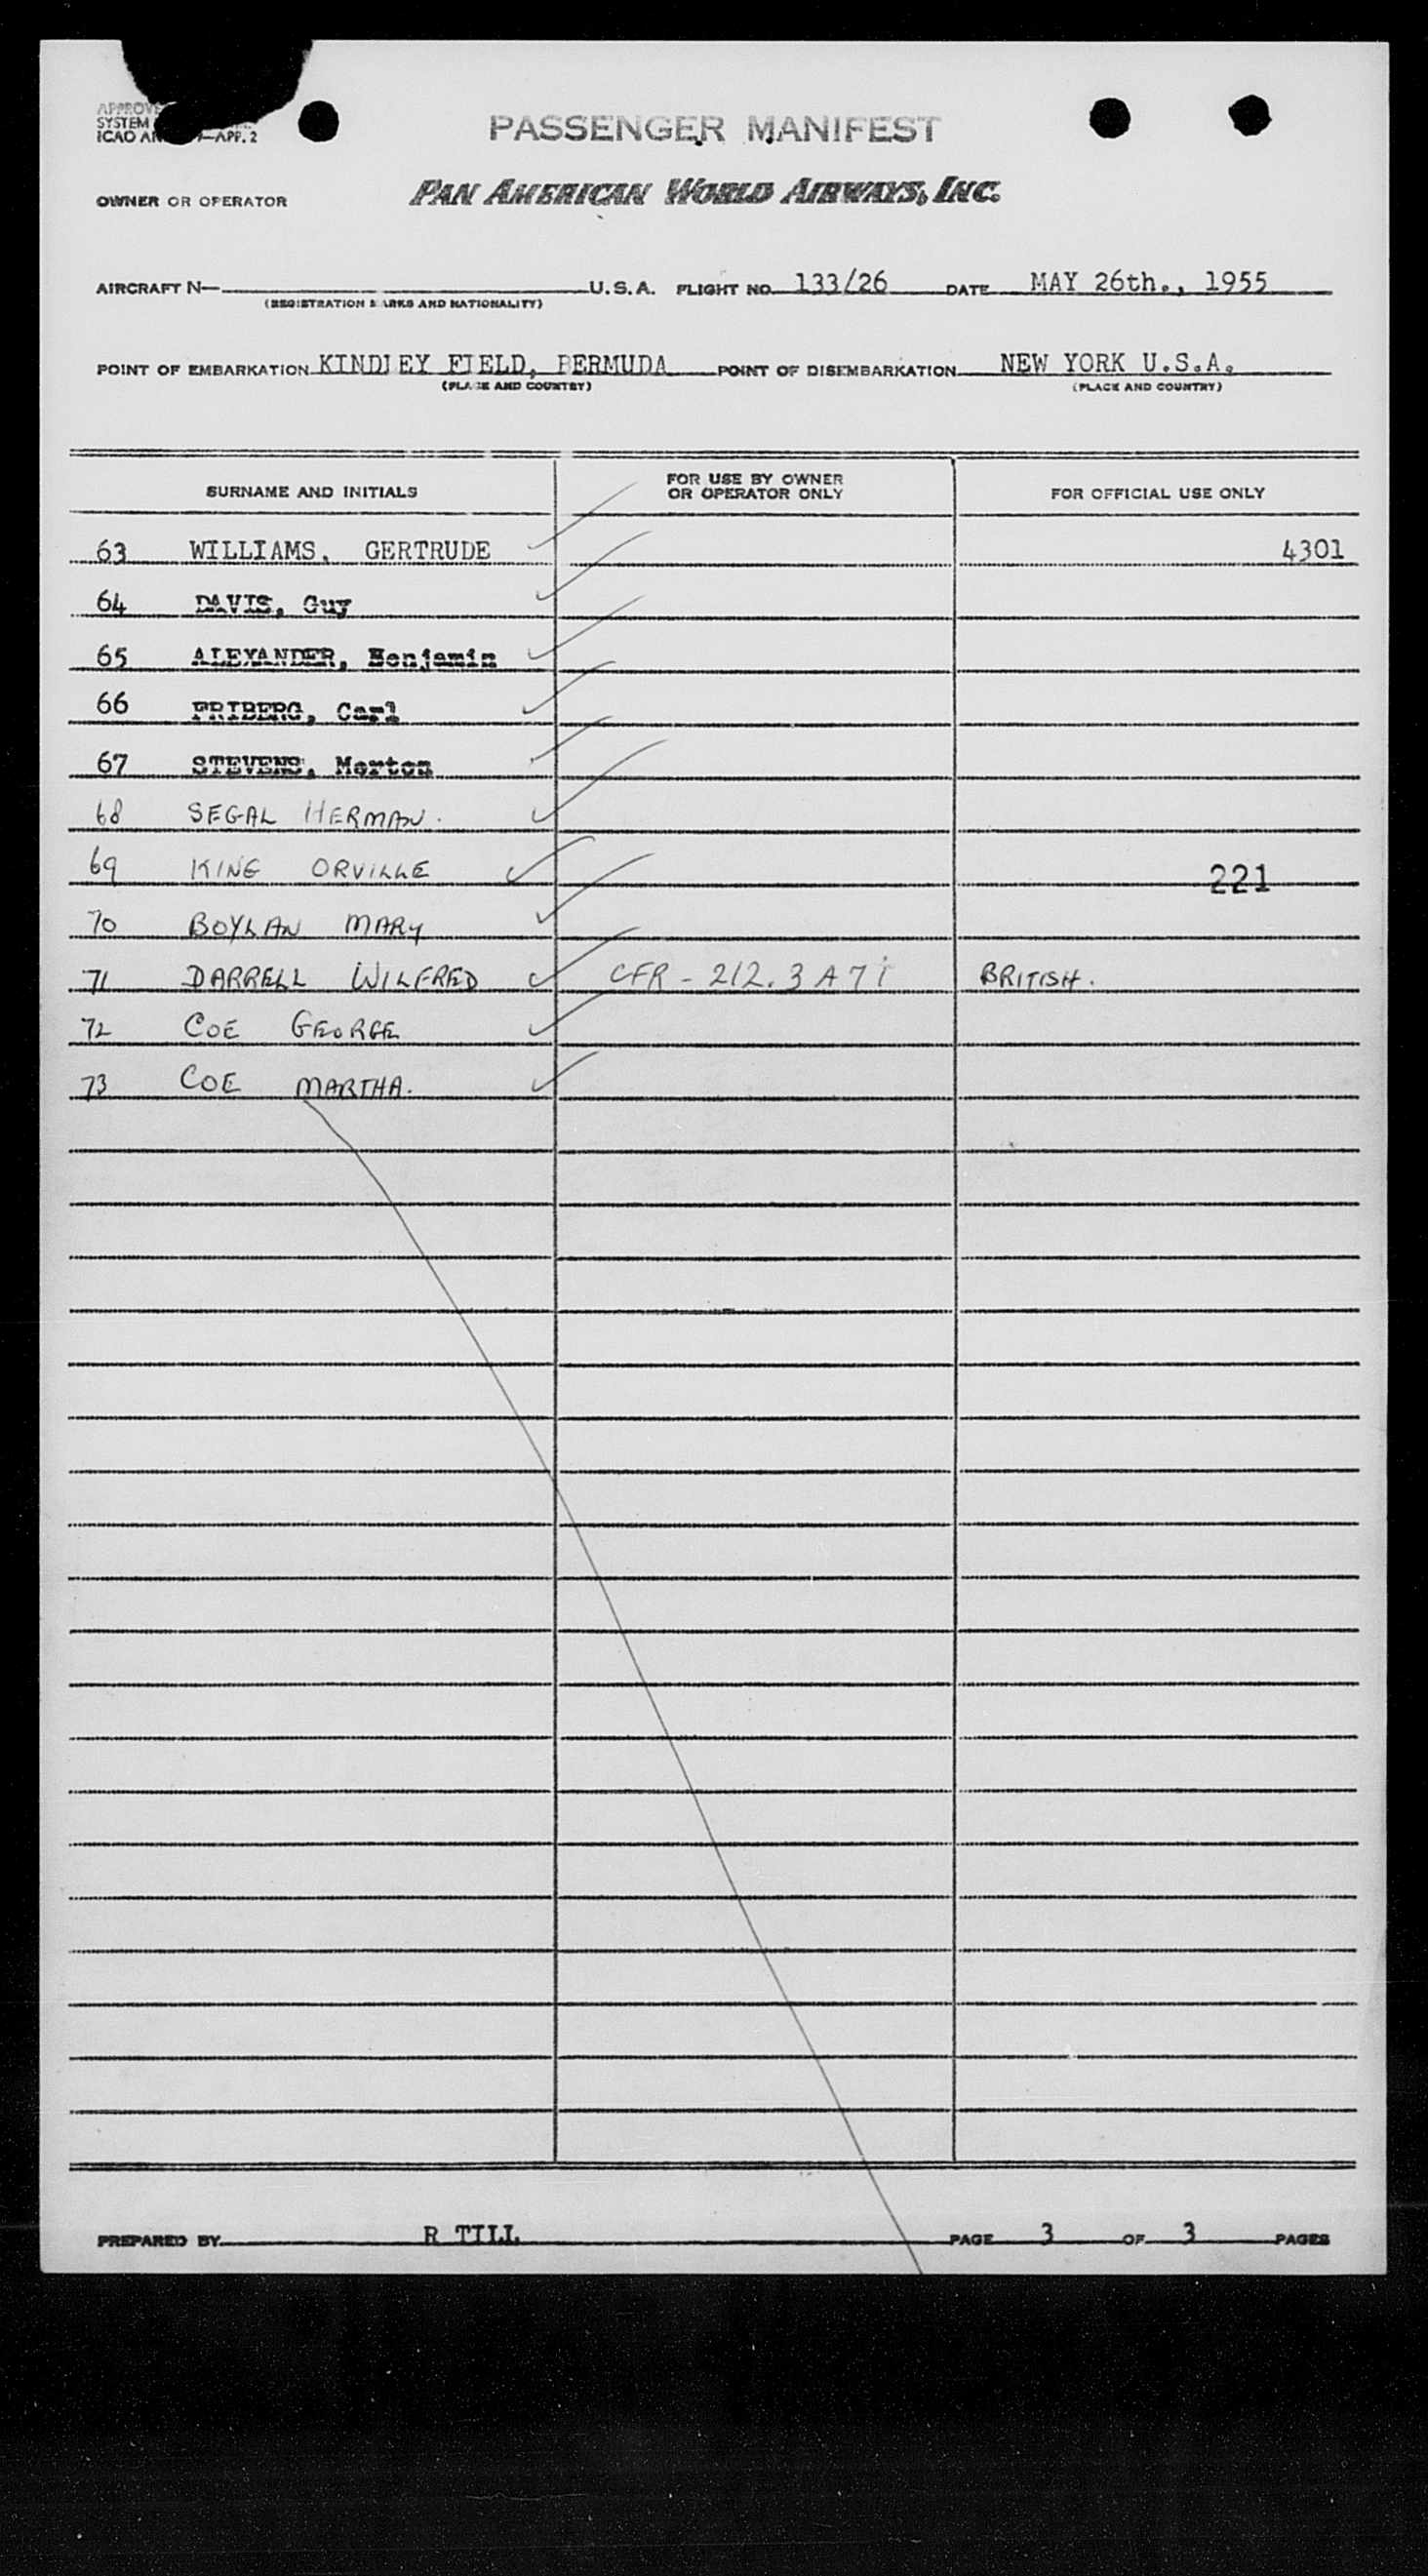 PASSENGER MANIFEST
SYSTEM
ICAO APP. 2
OWNER OR OPERATOR PAN AMERICAN WORLD AIRWAYS, INC.
AIRCRAFT N— U.S.A. FLIGHT NO. 133/26 DATE MAY 26th., 1955
(REGISTRATION MARKS AND NATIONALITY)
POINT OF EMBARKATION KINDLEY FIELD, BERMUDA POINT OF DISEMBARKATION NEW YORK U.S.A.
(PLACE AND COUNTRY) (PLACE AND COUNTRY)
SURNAME AND INITIALS FOR USE BY OWNER OR OPERATOR ONLY FOR OFFICIAL USE ONLY
63 WILLIAMS, GERTRUDE 4301
64 DAVIS, Guy
65 ALEXANDER, Benjamin
66 FRIBERG, Carl
67 STEVENS, Morton
68 SEGAL HERMAN.
69 KING ORVILLE 221
70 BOYLAN MARY
71 DARRELL WILFRED CFR - 212.3 A 7 i BRITISH.
72 COE GEORGE
73 COE MARTHA.
PREPARED BY R TILL PAGE 3 OF 3 PAGES